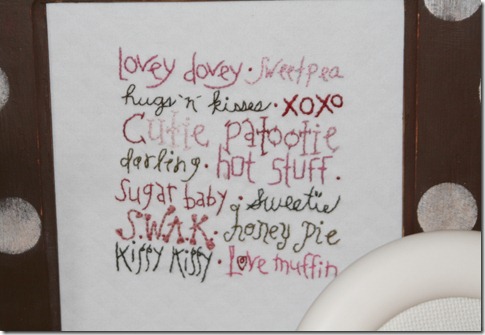 lovey dovey · sweetpea
hugs 'n' kisses · xoxo
Cutie patootie
darling · hot stuff ·
sugar baby · sweetie
S.W.A.K. · honey pie
Kissy Kissy · Love muffin